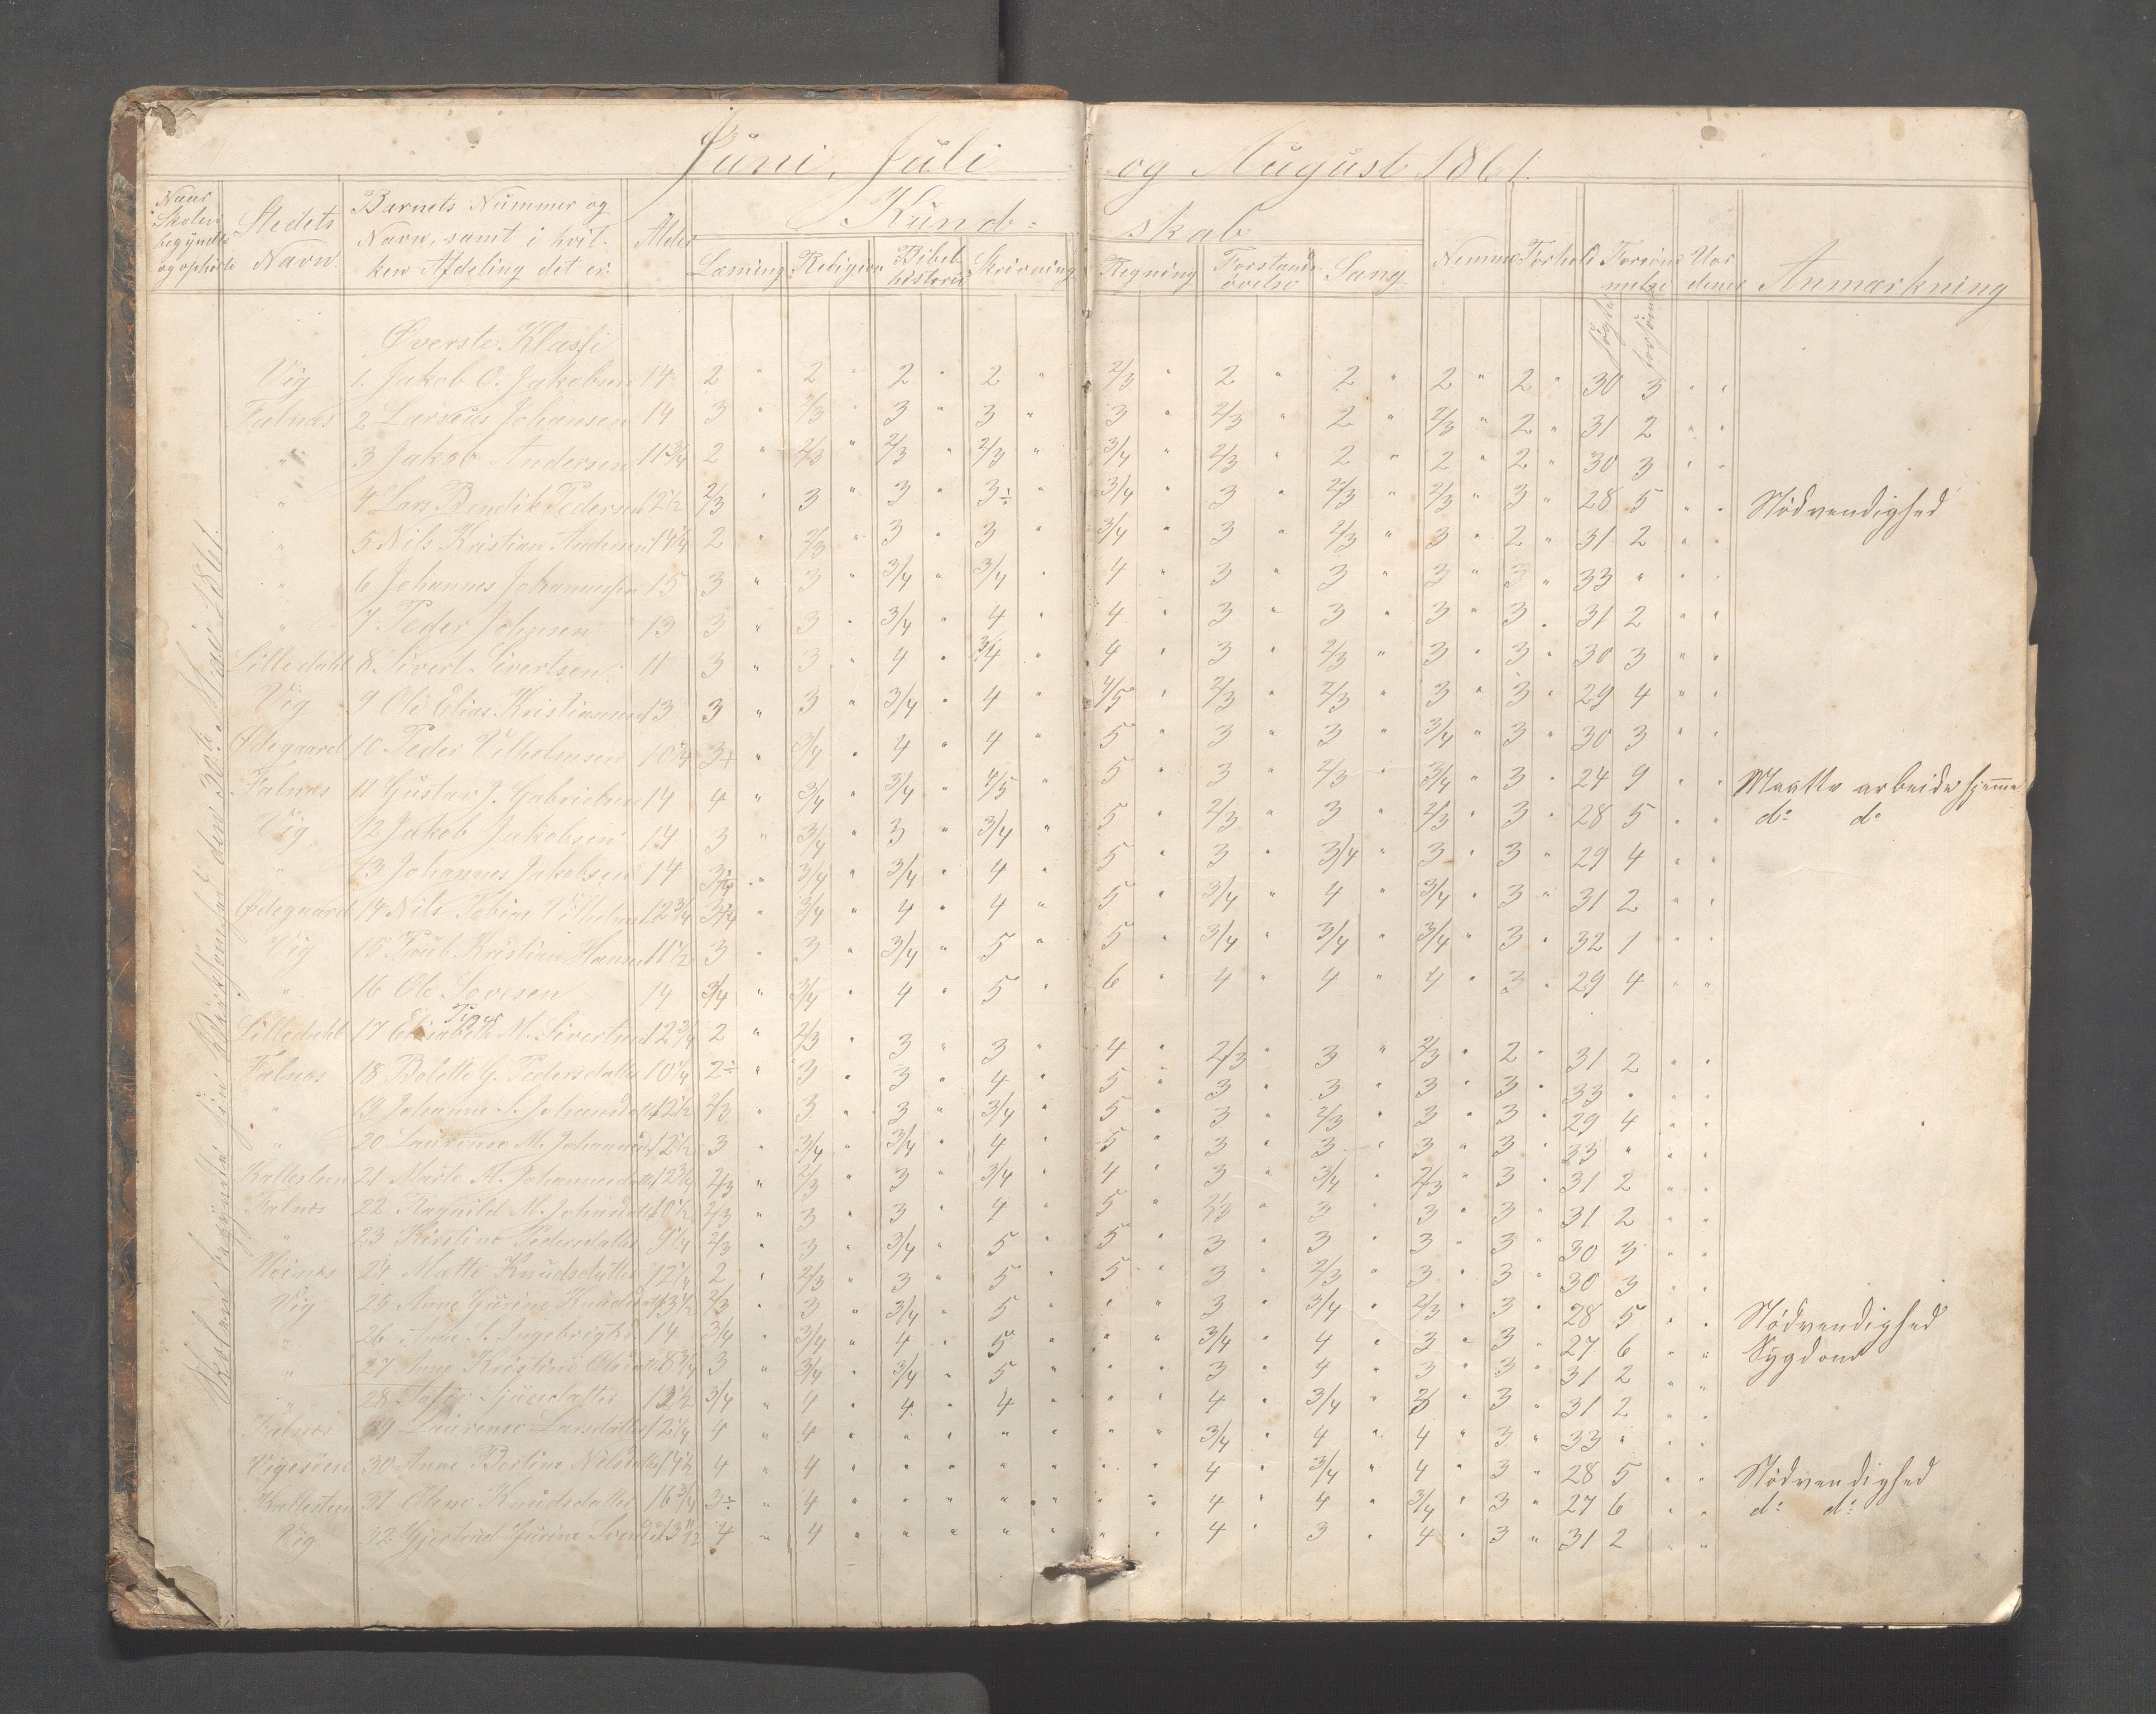 Juni, Juli og August 1861.
Naar Skolen begyndte og ophörte | Stedets Navn. | Barnets Nummer og Navn, samt i hvil- ken Afdeling det er. | Alder | Kund- skab | Nemme | Forhold | Forsöm- melse | Uor- dener | Anmærkning
Læsning | Religion | Bibel- historie | Skrivning | Regning | Forstands- övelse | Sang | sögte | forsömte
Skolen begyndte den 30te Mai 1861.
Överste Klasse
Vig 1. Jakob O. Jakobsen 14 2 " 2 " 2 " 2 " 2/3 " 2 " 2 " 2 " 2 " 30 3 " "
Falnæs 2 Larseus Johansen 14 3 " 2/3 " 3 " 3 " 3 " 2/3 " 2 " 2/3 " 2 " 31 2 " "
" 3 Jakob Andersen 11 3/4 2 " 2/3 " 2/3 " 2/3 " 3/4 " 2/3 " 2 " 2 " 2 " 30 3 " "
" 4 Lars Bendik Pedersen 12 1/2 2/3 " 3 " 3 " 3÷ " 3/4 " 3 " 2/3 " 2/3 " 3 " 28 5 " " Nödvendighed
" 5 Nils Kristian Andersen 14 1/4 2 " 2/3 " 3 " 3 " 3/4 " 3 " 2/3 " 3 " 2 " 31 2 " "
" 6 Johannes Johannessen 15 3 " 3 " 3/4 " 3/4 " 4 " 3 " 3 " 3 " 3 " 33 " " "
" 7 Peder Johnsen 13 3 " 3 " 3/4 " 4 " 4 " 3 " 3 " 3 " 3 " 31 2 " "
Lilledahl 8. Sivert Sivertsen 11 3 " 3 " 4 " 3/4 " 4 " 3 " 2/3 " 3 " 3 " 30 3 " "
Vig 9 Ole Elias Kristiansen 13 3 " 3 " 3/4 " 4 " 4/5 " 2/3 " 2/3 " 3 " 3 " 29 4 " "
Ödegaard 10 Peder Vilhelmsen 10 1/4 3+ " 3/4 " 4 " 4 " 5 " 3 " 3 " 3/4 " 3 " 30 3 " "
Falnæs 11 Gustav J. Gabrielsen 14 4 " 3/4 " 3/4 " 4/5 " 5 " 3 " 2/3 " 3/4 " 3 " 24 9 " " Maatte arbeide hjemme
Vig 12 Jakob Jakobsen 14 3 " 3/4 " 3 " 3/4 " 5 " 2/3 " 3 " 2/3 " 3 " 28 5 " " do do
" 13 Johannes Jakobsen 14 3/4 " 3/4 " 3/4 " 4 " 5 " 3 " 3/4 " 3 " 3 " 29 4 " "
Ödegaard 14 Nils Tobias Vilhelmsen 12 3/4 3/4 " 3/4 " 4 " 4 " 5 " 3/4 " 4 " 3/4 " 3 " 31 2 " "
Vig 15 Kristian Hansen 11 1/2 3 " 3 " 3/4 " 5 " 5 " 3/4 " 3/4 " 3/4 " 3 " 32 1 " "
" 16 Ole Sovesen 14 3/4 " 3/4 " 4 " 5 " 6 " 4 " 4 " 4 " 3 " 29 4 " "
Piger
Lilledahl 17 Elisabeth M. Sivertsen 12 3/4 2 " 2/3 " 3 " 3 " 4 " 2/3 " 3 " 2/3 " 2 " 31 2 " "
Falnæs 18 Bolette G. Pedersdatter 10 1/4 2÷ " 3 " 3 " 4 " 5 " 3 " 3 " 3 " 3 " 33 " " "
" 19 Johanne S. Johansdatter 12 1/2 2/3 " 3 " 3 " 3/4 " 5 " 3 " 2/3 " 3 " 3 " 29 4 " "
" 20 Laurense M. 12 1/2 3 " 3/4 " 3/4 " 4 " 5 " 3 " 3 " 3 " 3 " 33 " " "
Kallesteen 21 Marte M. Johannesdatter 12 3/4 2/3 " 2/3 " 3 " 3/4 " 4 " 3 " 3/4 " 2/3 " 3 " 31 2 " "
Falnæs 22 Ragnild M. Johnsdatter 10 1/2 2/3 " 3 " 3 " 4 " 5 " 2/3 " 3 " 3 " 3 " 31 2 " "
" 23 Kirstine Pedersdatter 9 1/4 2/3 " 3 " 3/4 " 5 " 5 " 3 " 3 " 3 " 3 " 30 3 " "
Höinæs 24 Mette Knudsdatter 12 1/4 2 " 2/3 " 3 " 5 " 5 " 3 " 2/3 " 3 " 3 " 30 3 " "
Vig 25 Anne Gurine 13 1/2 2/3 " 3 " 3/4 " 5 " " " 3 " 3/4 " 2/3 " 3 " 28 5 " " Nödvendighed
" 26 Anne S. Ingebrigtsd. 14 3/4 " 3/4 " 4 " 5 " " " 3/4 " 4 " 3 " 3 " 27 6 " " Sygdom
" 27 Anne Kristine Olsdatter 8 3/4 3 " 3/4 " 3/4 " 5 " " " 3 " 4 " 3 " 3 " 31 2 " "
" 28 Sofie 12 1/2 3/4 " 4 " 4 " 4 " " " 4 " 3/4 " 3 " 3 " 31 2 " "
Falnæs 29 Laurense Larsdatter 12 1/4 4 " 4 " " " " " " " 3/4 " 4 " 4 " 3 " 33 " " "
Vigesöen 30 Anne Bertine Nilsdatter 14 1/2 4 " 4 " " " " " " " 4 " 3/4 " 4 " 3 " 28 5 " " Nödvendighed
Kallesteen 31 Olene Knudsdatter 16 3/4 3÷ " 4 " " " " " " " 4 " 4 " 3/4 " 3 " 27 6 " " do do
Vig 32 Gjertrud Gurine 13 1/2 4 " 4 " " " " " " " 4 " 3 " 4 " 3 " 31 2 " "